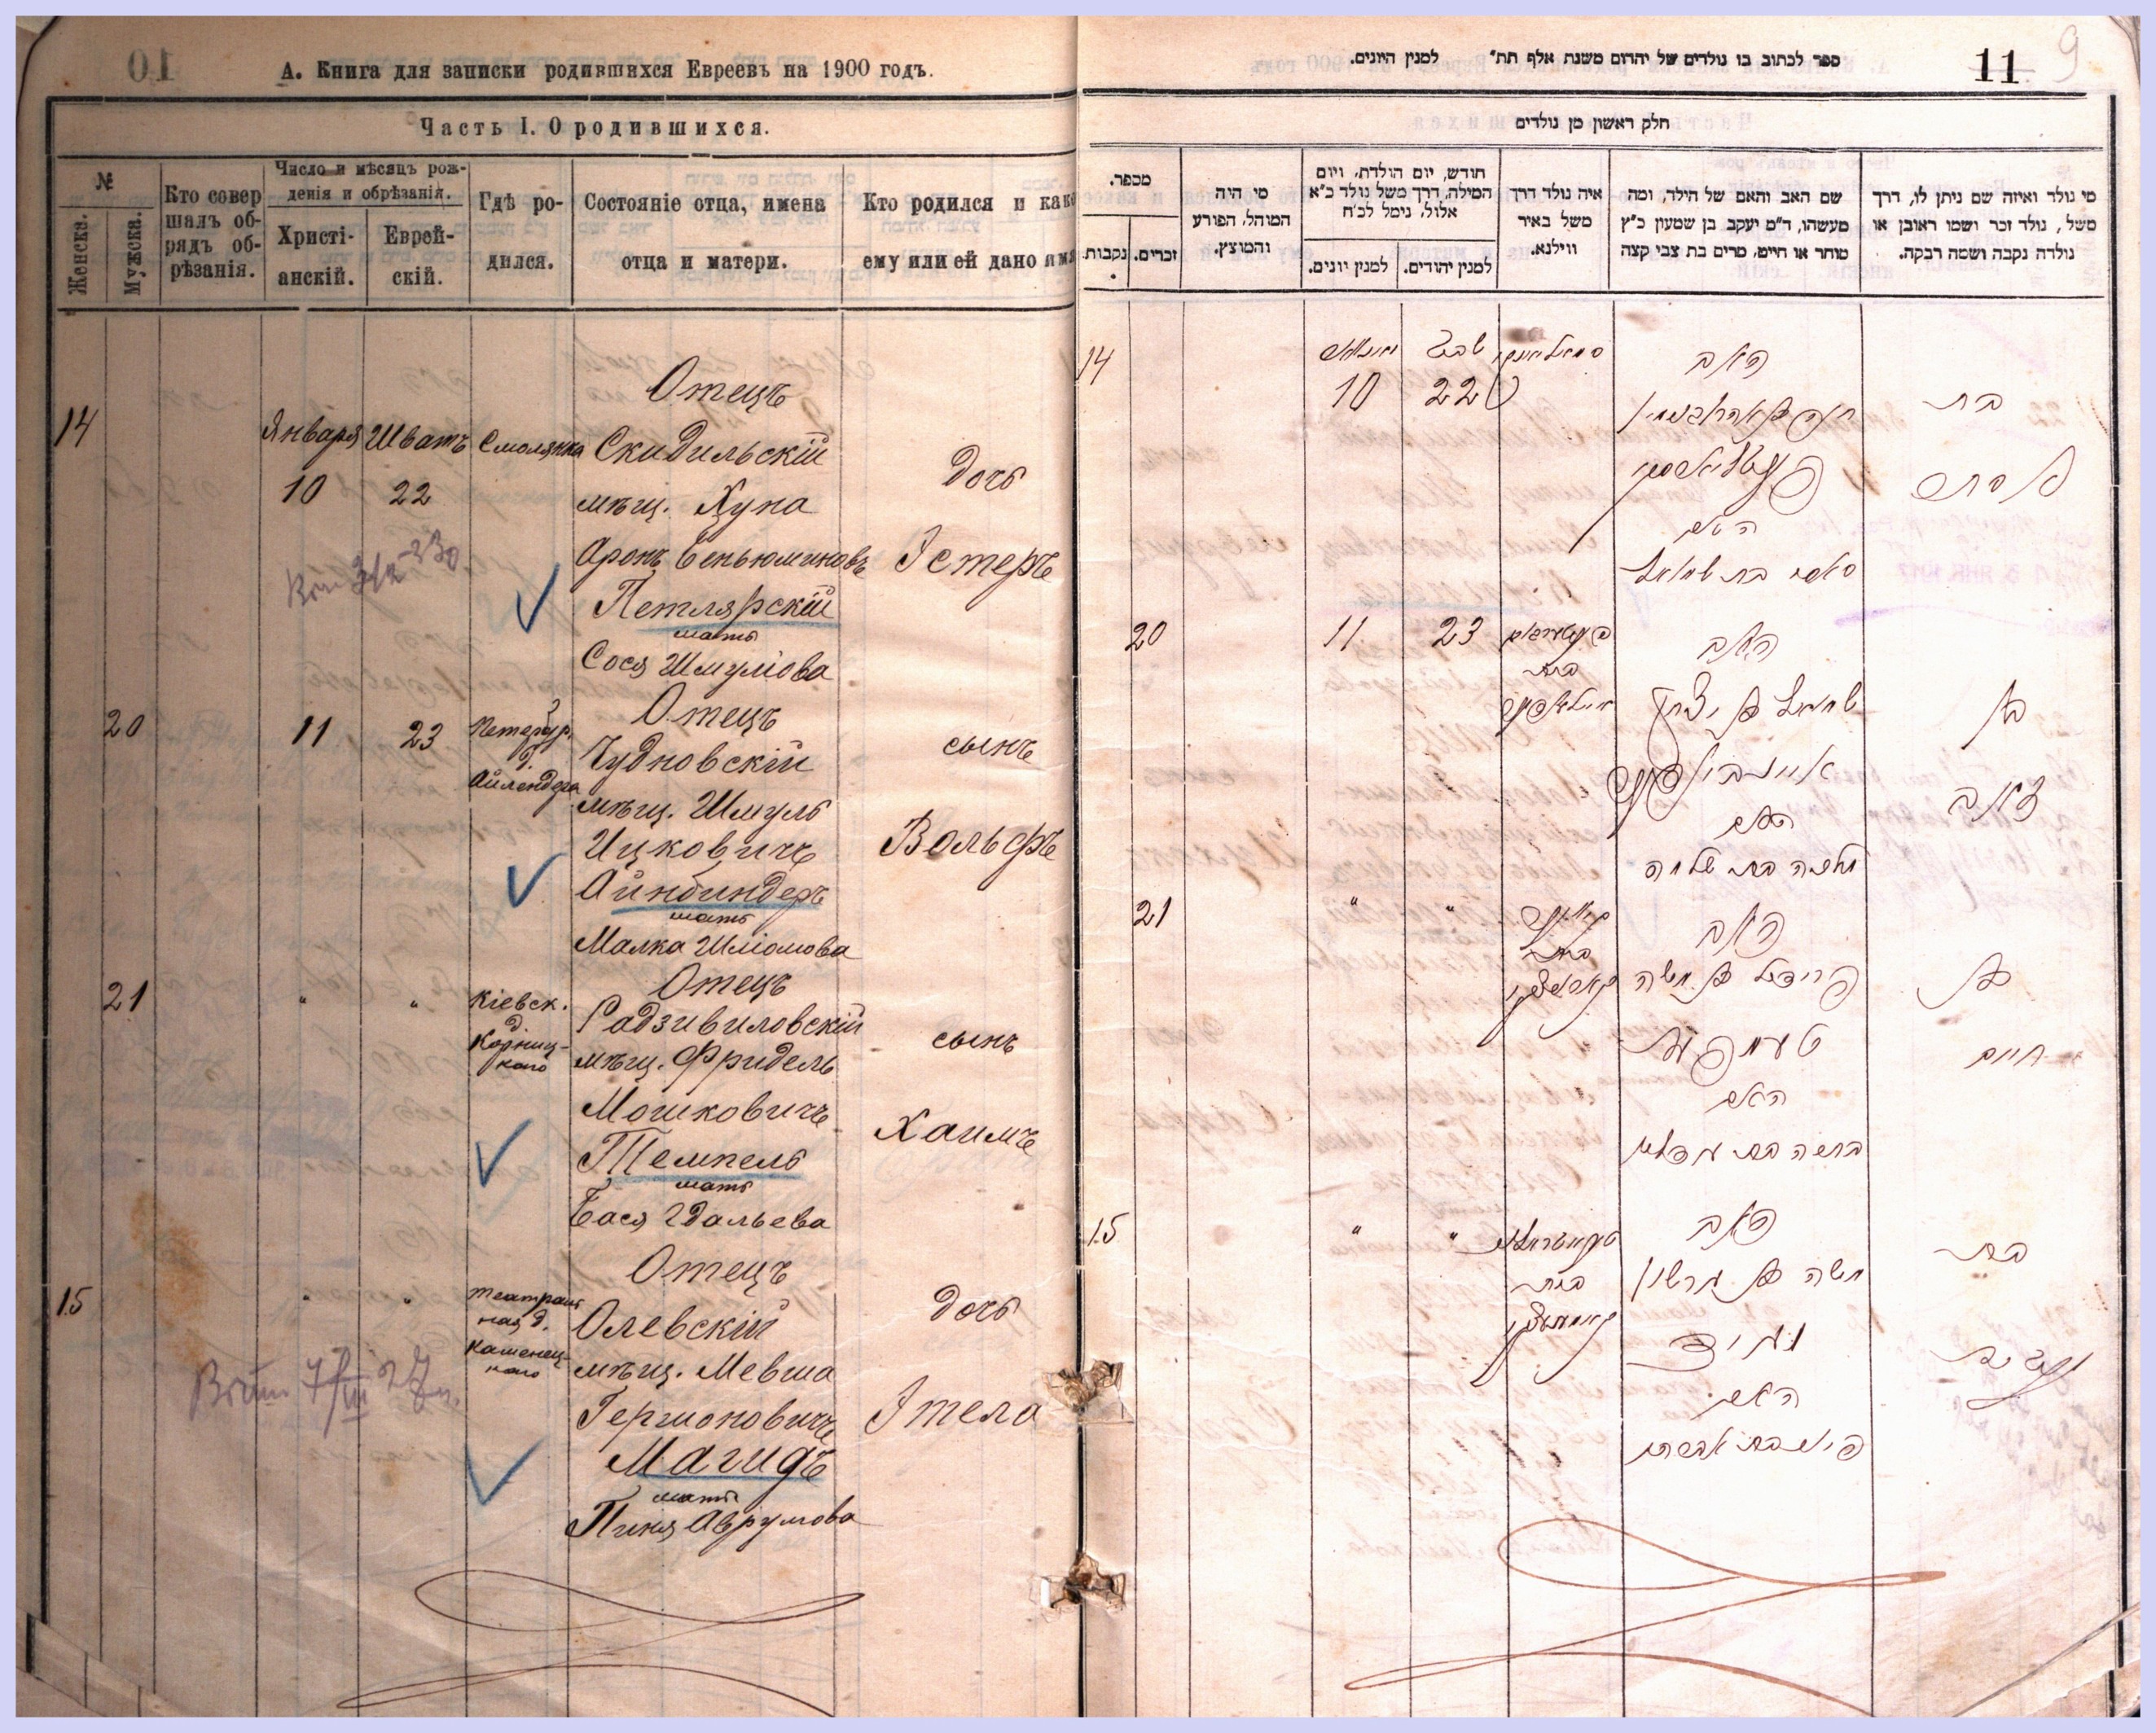 А. Книга для записки родившихся Евреевъ на 1900 годъ.
Часть I. О родившихся.
№
Женска.
Мужска.
Кто совер
шалъ об-
рядъ об-
рѣзанія.
Число и мѣсяцъ рож-
денія и обрѣзанія.
Христі-
анскій.
Еврей-
скій.
Гдѣ ро-
дился.
Состояніе отца, имена
отца и матери.
Кто родился и како
ему или ей дано имя
14
Января
10
Шватъ
22
Смолянка
Отецъ
Скидильскій
мѣщ. Хуна
Аронъ Беньюминовъ
Петлярскій
мать
Сося Шмуліова
Дочь
Істеръ
20
11
23
Петербур.
д.
Айлендера
Отецъ
Чудновскій
мѣщ. Шмуль
Ицковичъ
Айнбиндеръ
мать
Малка Шліомова
сынъ
Вольфъ
21
"
"
Кіевск.
д.
Корниц-
каго
Отецъ
Радзивиловскій
мѣщ. Фридель
Мошковичъ
Темпель
мать
Бася Гдальева
сынъ
Хаимъ
15
"
"
Театраль
ная д.
Каменец-
каго
Отецъ
Олевскій
мѣщ. Мевша
Гершоновичъ
Магидъ
мать
Пиня Аврумова
дочь
Ітела
ספר לכתוב בו נולדים של יהדום משנת אלף תת" למנין היונים.
11
9
חלק ראשון מן נולדים
מספר.
נקבות
זכרים.
מי היה
המוהל, הפורע
והמוצץ.
חודש, יום הולדת, ויום
המילה, דרך משל נולד כ"א
אלול, נימל לכ"ח
למנין יונים.
למנין יהודים.
איה נולד דרך
משל באיר
ווילנא.
שם האב והאם של הילד, ומה
מעשהו, ד"מ יעקב בן שמעון כ"ץ
סוחר או חייט, מרים בת צבי קצה
מי נולד ואיזה שם ניתן לו, דרך
משל, נולד זכר ושמו ראובן או
נולדה נקבה ושמה רבקה.
14
10
שבט
22
האב
האם
סאסי בת שמואל
בת
אסתר
20
11
23
בית
האב
שמואל בן יצחק
איינבינדער
האם
מלכה בת שלמה
בן
זאב
21
"
"
בית
האב
פרידל בן משה
טעמפעל
האם
בן
חיים
15
"
"
בית
האב
משה בן גרשון
מגיד
האם
בת